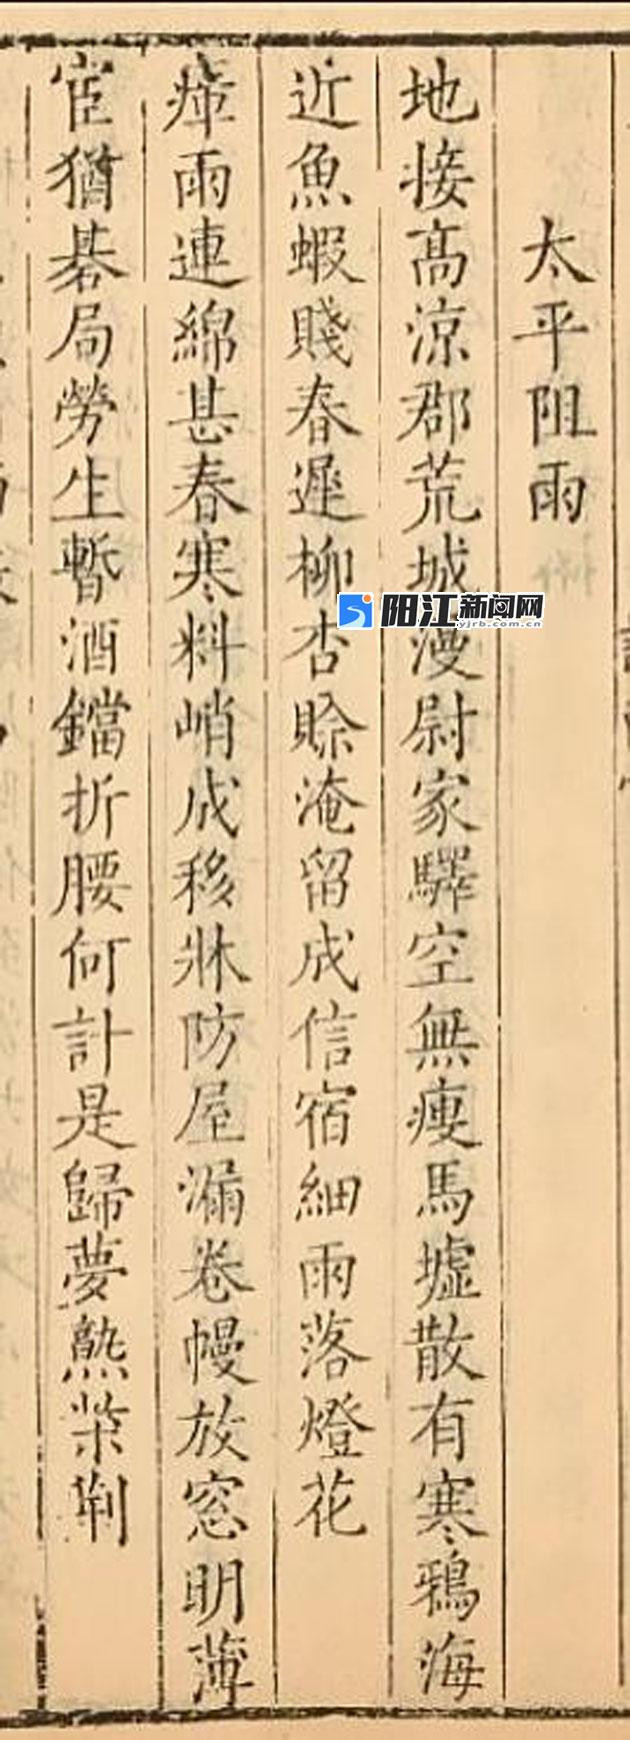 太平阻雨
地接高涼郡荒城漫尉家驛空無瘦馬墟散有寒鴉海
近魚蝦賤春遲柳杏賒淹留成信宿細雨落燈花
瘴雨連綿甚春寒料峭成移牀防屋漏卷幔放窓明薄
宦猶碁局勞生暫酒鐺折腰何計是歸夢熟柴荆
阳江新闻网
yjrb.com.cn